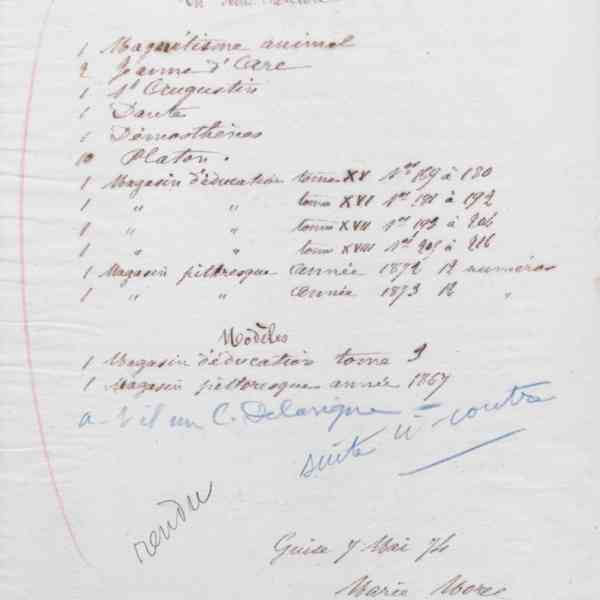 1 Magnétisme animal
2 Jeanne d'Arc
1 St Augustin
1 Dante
1 Démosthènes
10 Platon.
1 Magasin d'éducation tome XV Nos 169 à 180
1 " " tome XVI Nos 181 à 192
1 " " tome XVII Nos 193 à 204
1 " " tome XVIII Nos 205 à 216
1 Magasin pittoresque année 1872 12 numéros
1 " " année 1873 12 "
Modèles
1 Magasin d'éducation tome 9
1 Magasin pittoresque année 1867
a-t-il un C. Delavigne -
suite ci-contre
rendu
Guise 7 Mai 74
Marie Moret